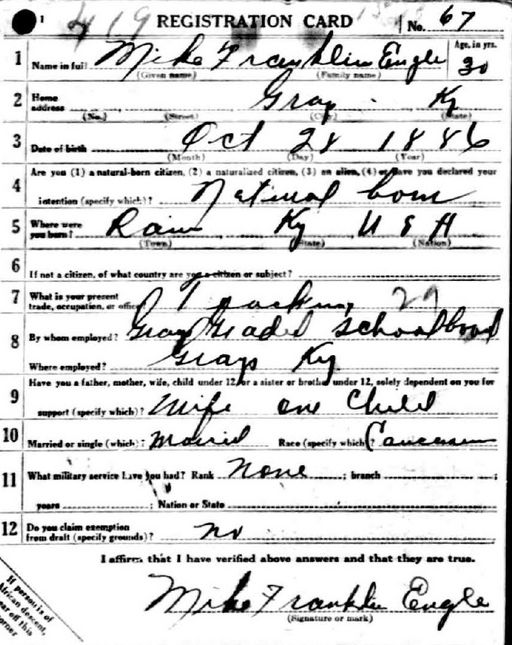 1 419 REGISTRATION CARD No. 67
1 Name in full Mike Franklin Engle Age, in yrs. 30
(Given name) (Family name)
2 Home address Gray Ky
(No.) (Street) (City) (State)
3 Date of birth Oct 28 1886
(Month) (Day) (Year)
Are you (1) a natural-born citizen, (2) a naturalized citizen, (3) an alien, (4) or have you declared your
4 intention (specify which)? Natural born
5 Where were you born? Rain Ky U S A
(Town) (State) (Nation)
6 If not a citizen, of what country are you a citizen or subject?
7 What is your present trade, occupation, or office? Teaching 29
8 By whom employed? Grays Graded School board
Where employed? Grays Ky.
Have you a father, mother, wife, child under 12, or a sister or brother under 12, solely dependent on you for
9 support (specify which)? Wife one Child
10 Married or single (which)? Married Race (specify which)? Caucasian
11 What military service have you had? Rank None ; branch ;
years ; Nation or State
12 Do you claim exemption from draft (specify grounds)? no
I affirm that I have verified above answers and that they are true.
Mike Franklin Engle
(Signature or mark)
If person is of
African descent,
tear off this
corner